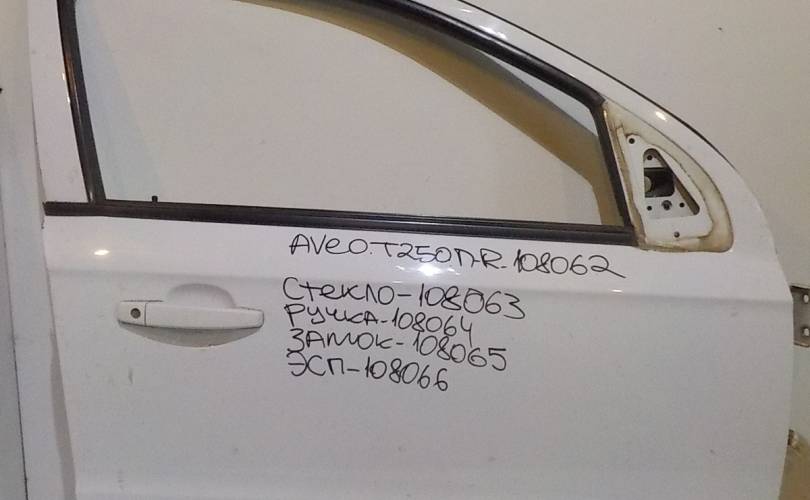 AVEO.T250П-R-108062
СТЕКЛО-108063
РУЧКА-108064
ЗАМОК-108065
ЭСП-108066